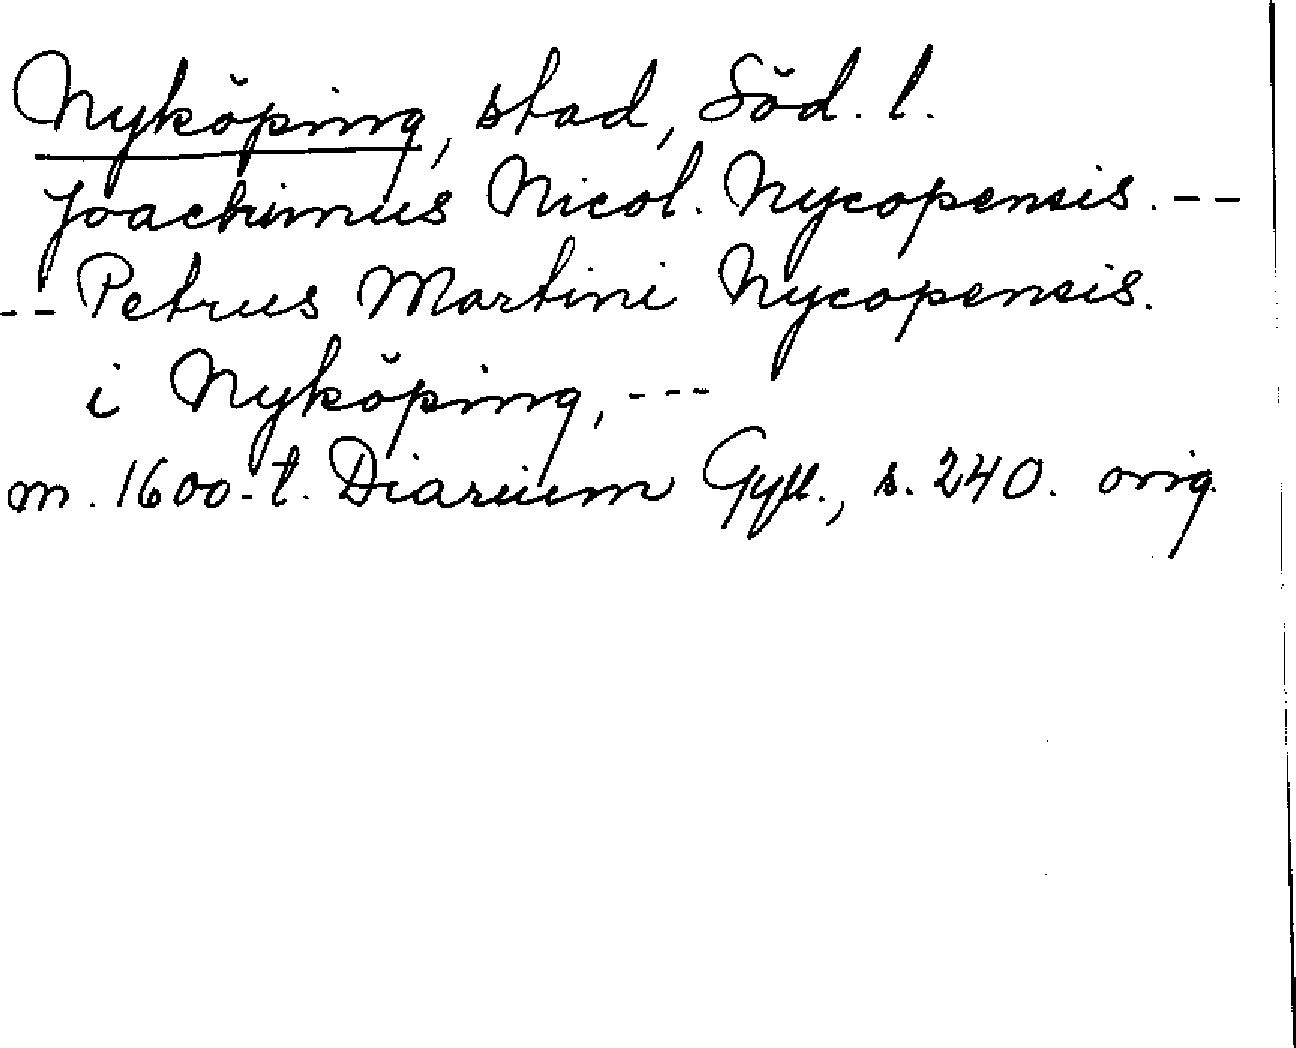 Nyköping, stad, Söd. l.
Joachimus Nicol. Nycopensis. --
-- Petrus Martini Nycopensis.
i Nyköping, ---
m. 1600-t. Diarium Gyll., s. 240. orig.